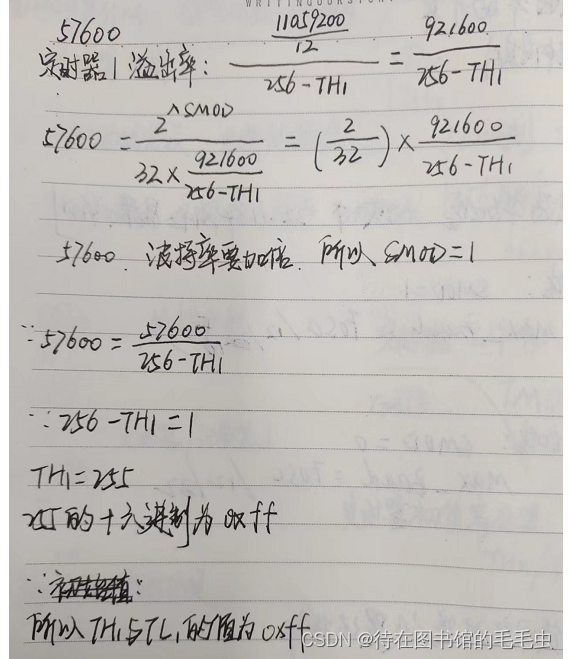 WRITING OUR STORY
57600
定时器1溢出率: (11059200/12)/(256-TH1) = 921600/(256-TH1)
57600 = 2^SMOD/(32×921600/(256-TH1)) = (2/32)×921600/(256-TH1)
57600. 波特率要加倍. 所以 SMOD=1
∵57600 = 57600/(256-TH1)
∵256-TH1=1
TH1=255
255的十六进制为0xff
∵初始值:
所以TH1与TL1的值为0xff
CSDN @待在图书馆的毛毛虫